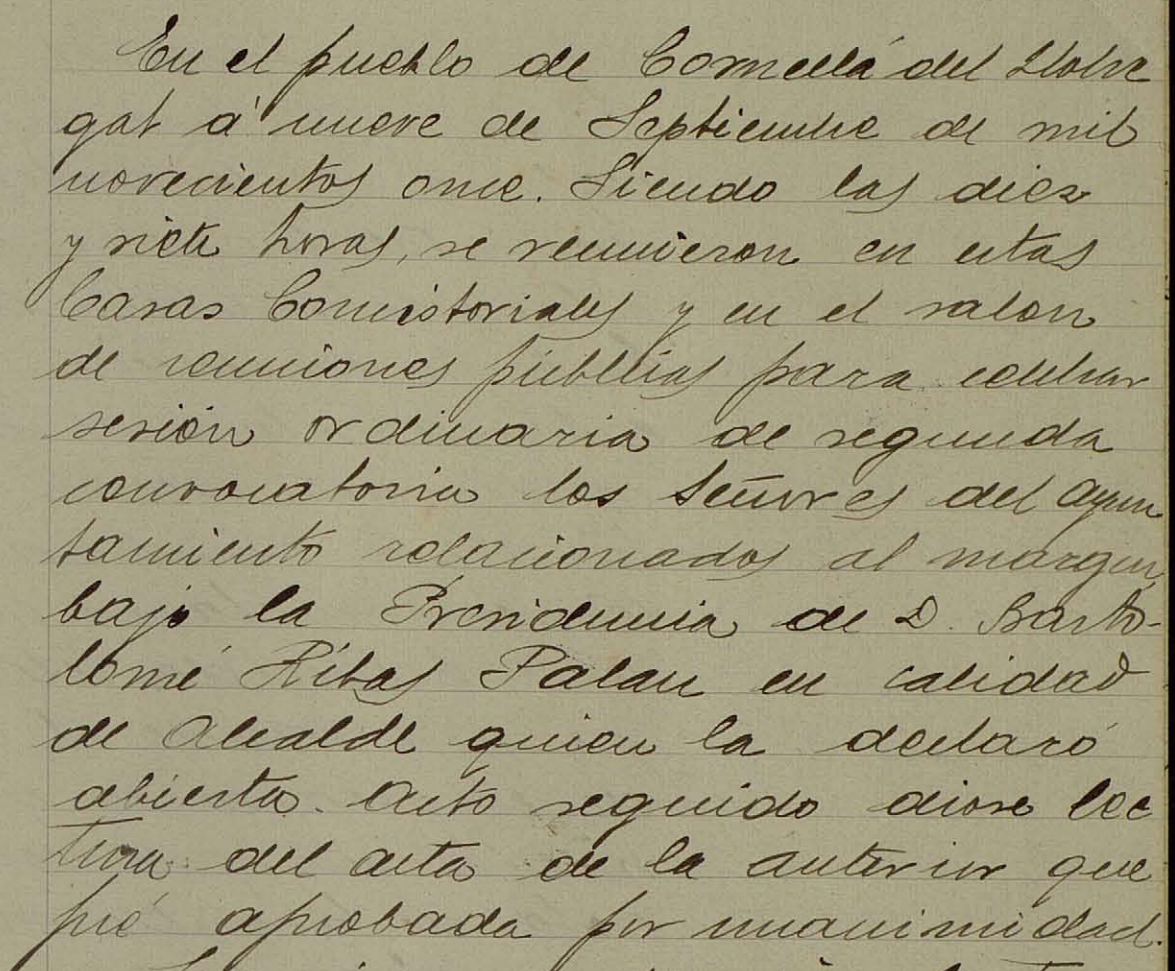 En el pueblo de Cornellá del Llobre
gat á nueve de Septiembre de mil
novecientos once. Siendo las diez
y siete horas, se reunieron en estas
Casas Consistoriales y en el salon
de reuniones públicas para celebrar
sesión ordinaria de segunda
convocatoria los Señores del Ayun
tamiento relacionados al margen
bajo la Presidencia de D. Barto-
lomé Ribas Palau en calidad
de Alcalde quien la declaró
abierta. Acto seguido diose lec
tura del acta de la anterior que
fué aprobada por unanimidad.